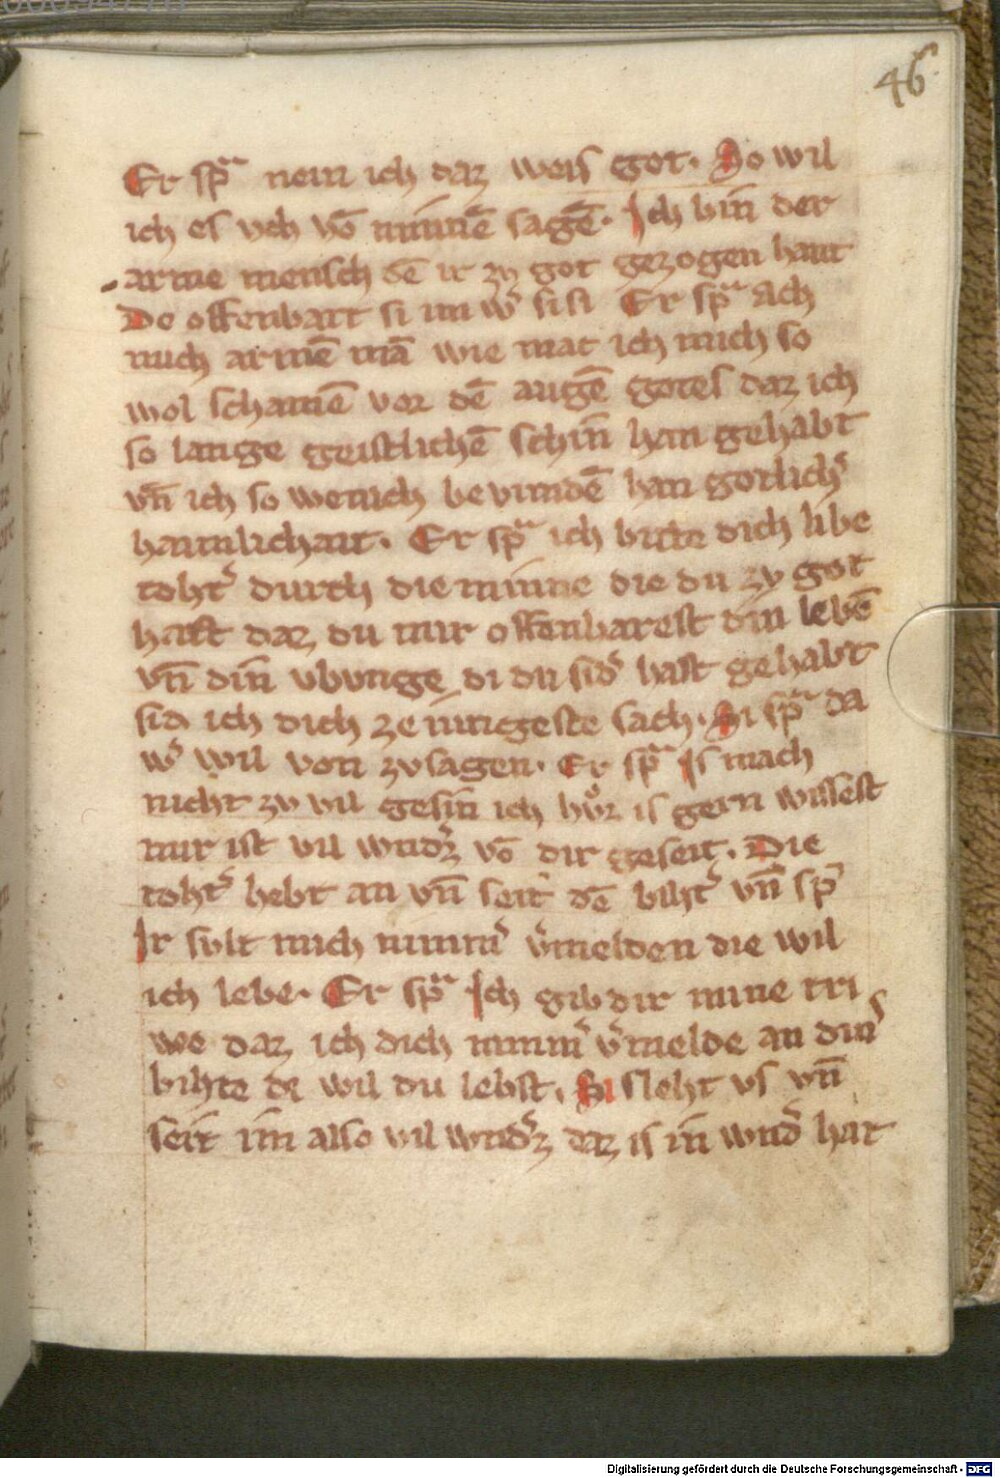 46
Er spͣ nein ich daz weis got. So wil
ich es vch vō minnē sagē. Ich bin der
arme mensch dē ir zv got gezogen hant
De offenbart si im w᷒ si si Er spͣ ach
mich armē mā wie mac ich mich so
wol schamē vor dē augē gotes daz ich
so lange geistlichē schin han gehabt
vn̄ ich so wenich bevundē han gotlich᷒
haimlichait. Er spͣ ich bitte dich libe
toht᷒ durch die minne die du zv got
hast daz du mir offenbarest din lebē
vn̄ din vbvnge di du sid᷒ hast gehabt
sid ich dich ze iungeste sach. Si spͣ da
w᷒ wil von zv sagen. Er spͣ Is mach
nicht zv vil gesin ich hvͦr is gern wissest
mir ist vil wnd᷒z vō dir geseit. Die
toht᷒ hebt an vn̄ seit dē biht᷒ vn̄ sp᷒
Ir sylt mich nimm᷒ v᷒melden die wil
ich lebe. Er spͣ Ich gib dir mine tri
we daz ich dich nimm᷒ v᷒melde an din᷒
bihte di wil du lebst. Si sleht vf vn̄
seit im also vil wnd᷒z daz is in wnd᷒ hat
Digitalisierung gefördert durch die Deutsche Forschungsgemeinschaft - DFG